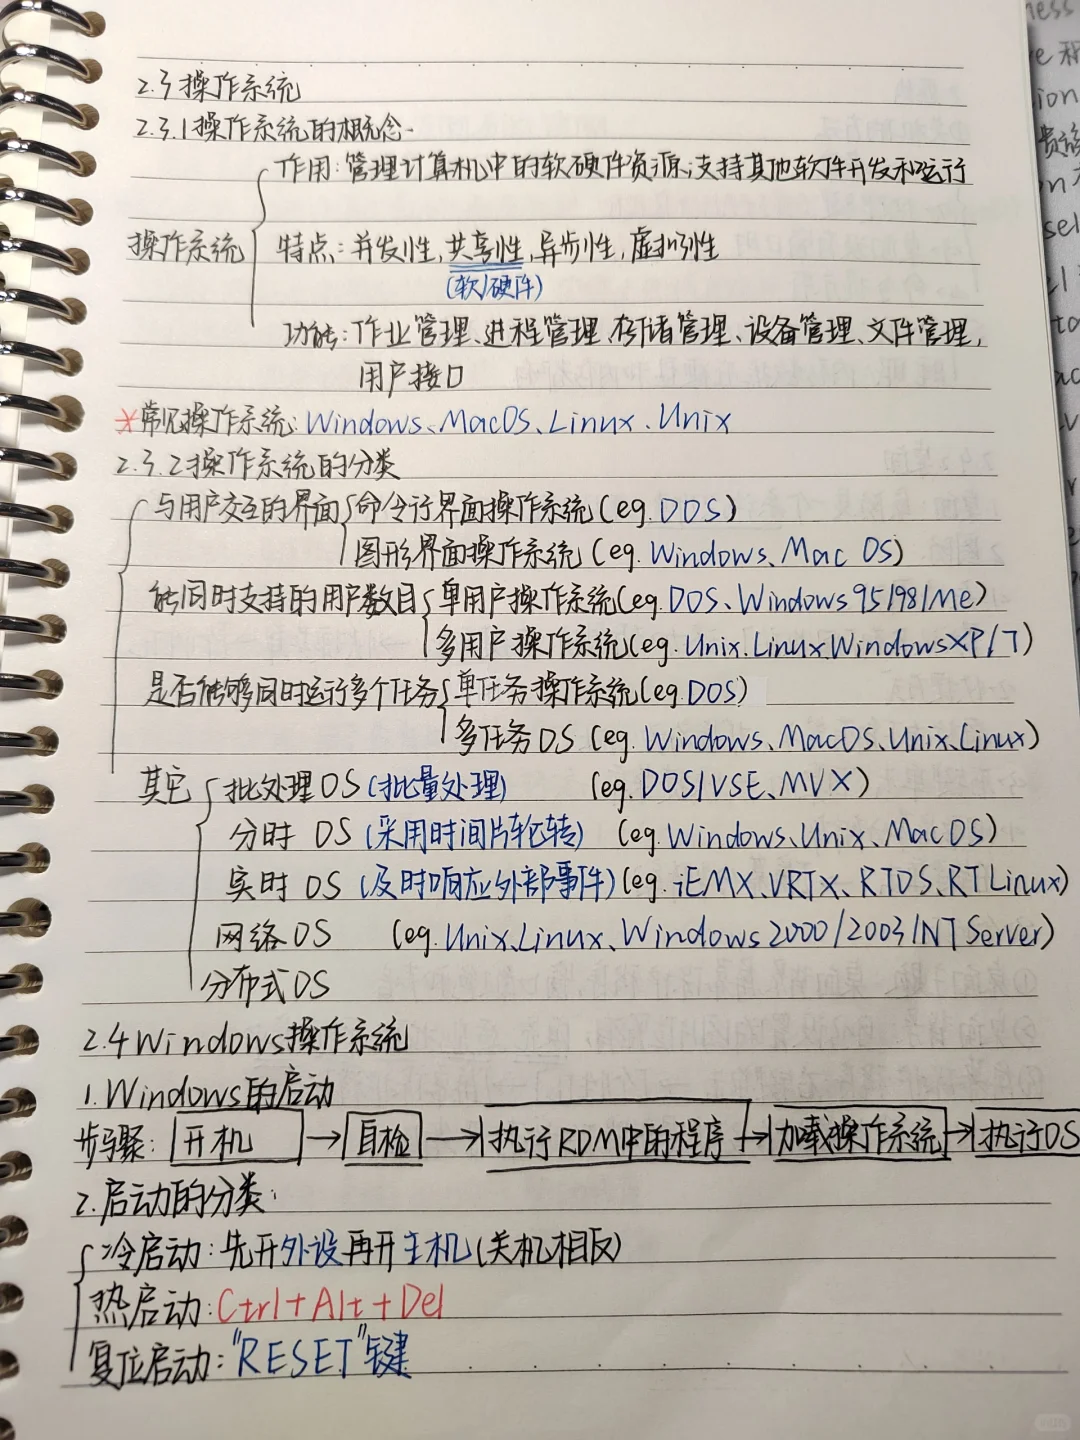 2.3操作系统
2.3.1操作系统的概念
作用:管理计算机中的软硬件资源;支持其他软件开发和运行
操作系统 特点:并发性,共享性,异步性,虚拟性
(软/硬件)
功能:作业管理、进程管理、存储管理、设备管理、文件管理,
用户接口
*常见操作系统:Windows、MacOS、Linux、Unix
2.3.2操作系统的分类
与用户交互的界面 命令行界面操作系统(eg.DOS)
图形界面操作系统(eg.Windows、Mac OS)
能同时支持的用户数目 单用户操作系统(eg.DOS、Windows95/98/Me)
多用户操作系统(eg.Unix.Linux.WindowsXP/7)
是否能够同时运行多个任务 单任务操作系统(eg.DOS)
多任务OS(eg.Windows、MacOS、Unix、Linux)
其它 批处理OS(批量处理) (eg.DOS/VSE、MVX)
分时 OS(采用时间片轮转) (eg.Windows、Unix、MacOS)
实时 OS(及时响应外部事件)(eg.iEMX、VRTX、RTOS、RTLinux)
网络OS (eg.Unix、Linux、Windows2000/2003/NTServer)
分布式OS
2.4Windows操作系统
1.Windows的启动
步骤:开机→自检→执行ROM中的程序→加载操作系统→执行OS
2.启动的分类:
冷启动:先开外设再开主机(关机相反)
热启动:Ctrl+Alt+Del
复位启动:"RESET"键